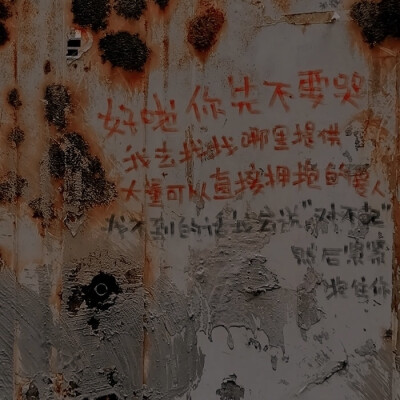 好啦 你先不要哭
我去找找哪里提供
大量可以直接拥抱的爱人
找不到的话我会说"对不起"
然后紧紧
抱住你